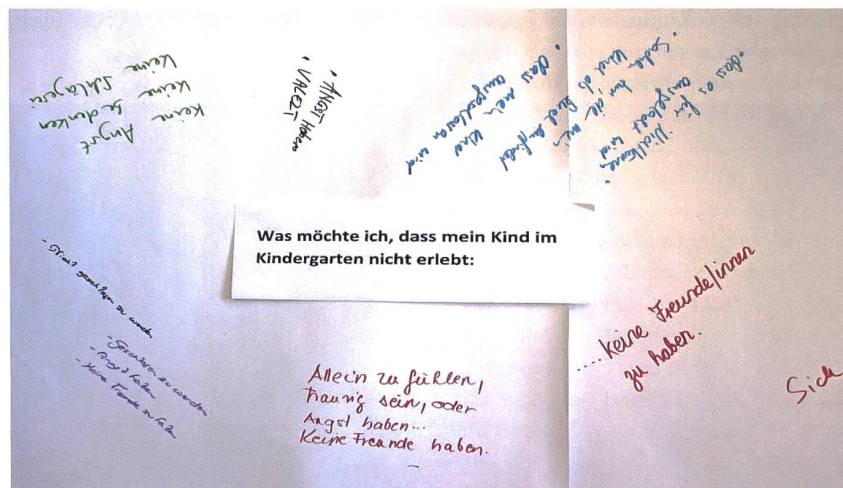 Keine Angst
keine
keine Schlägerei
• ANGST Haben
• VALEZT
• dass es für Nichtkönnen
ausgelacht wird
• Sachen tun, die mein
Kind als empfindet
• dass mein Kind
ausgeschlossen wird
Was möchte ich, dass mein Kind im
Kindergarten nicht erlebt:
- Nicht geschlagen zu werden
- Geschlagen zu werden
- Angst haben
- Keine Freunde zu haben
Allein zu fühlen,
traurig sein, oder
Angst haben...
Keine Freunde haben.
....keine Freunde/innen
zu haben.
Sich